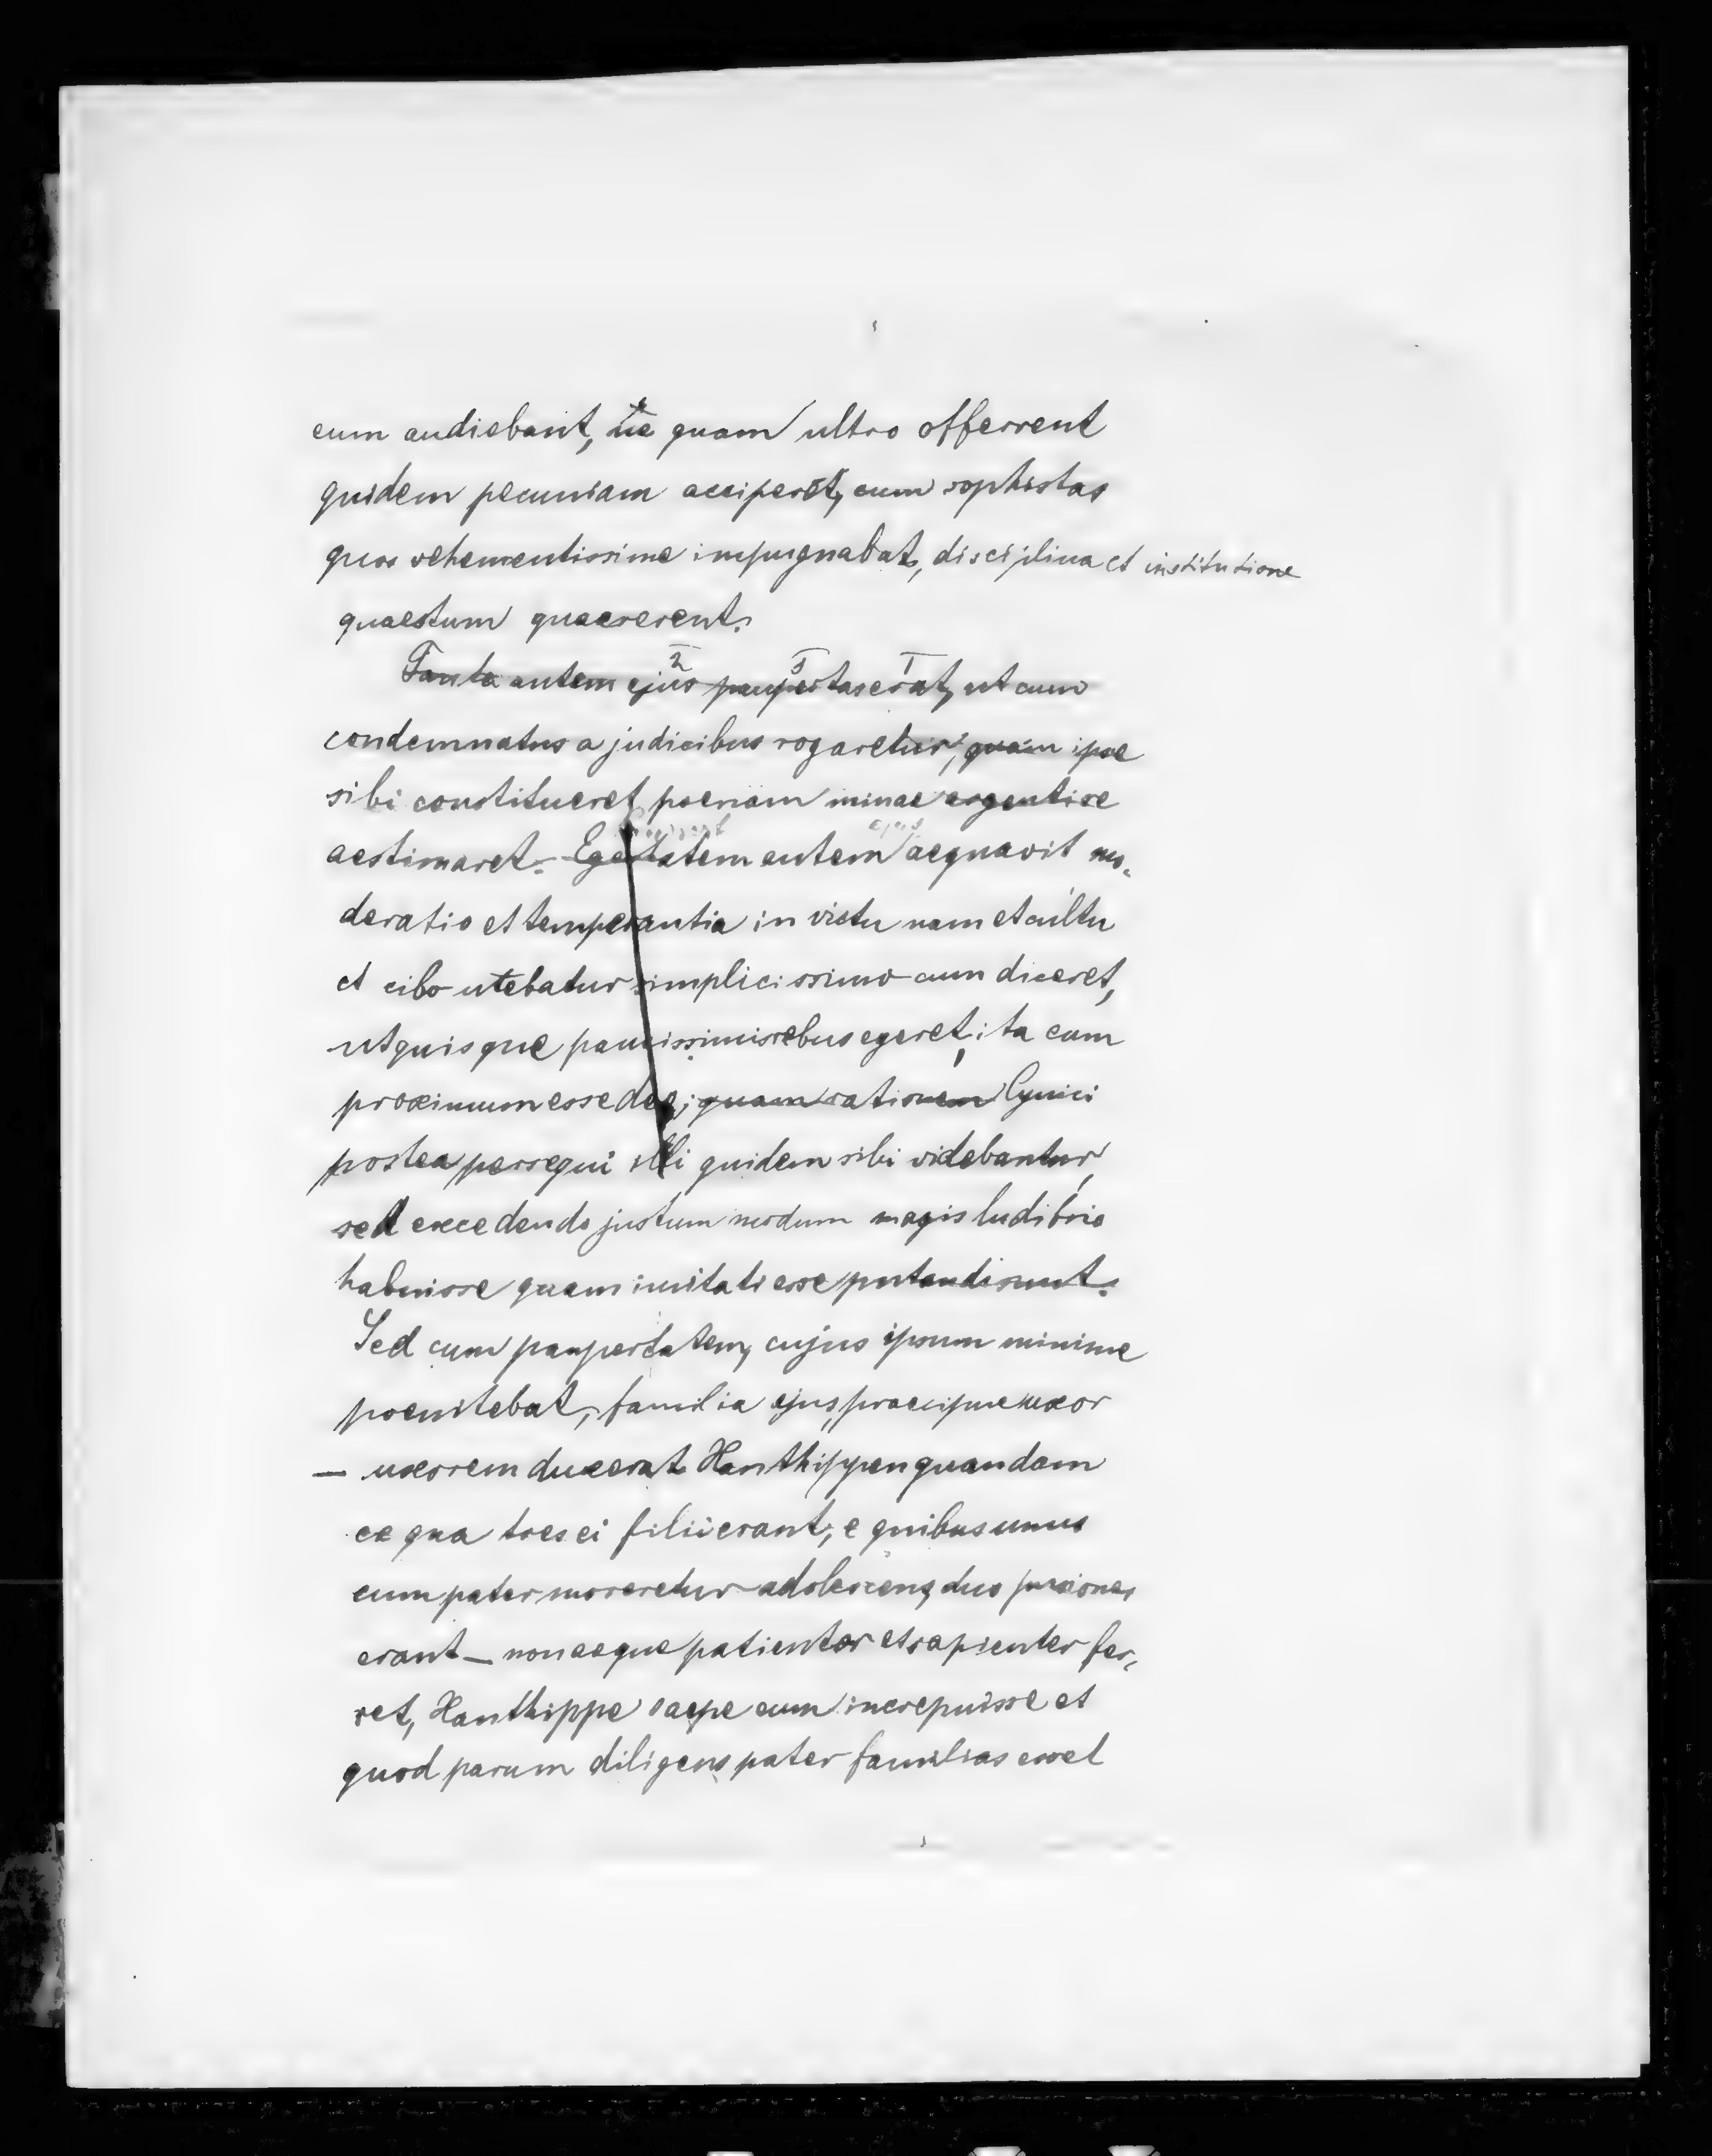 eum audiebant, ne quam ultro offerrent
quidem pecuniam acciperet, cum sophistas
quos vehementissime impugnabat, disciplina et institutione
quaestum quaererent.
2 3 1
Tanta autem ejus paupertas erat, ut cum
condemnatus a judicibus rogaretur, quam ipse
sibi constitueret poenam minae argenti se
aestimaret. Egestatem autem aequavit mo-
deratio et temperantia in victu nam et cultu
et cibo utebatur simplicissimo cum diceret,
ut quisque paucissimis rebus egeret, ita eum
proximum esse deo; quam rationem Cynici
postea persequi illi quidem sibi videbantur,
sed excedendo justum modum magis ludibrio
habuisse quam imitati esse putandi sunt.
Sed cum paupertatem, cujus ipsum minime
poenitebat, familia ejus, praecipue uxor
— uxorem duxerat Xanthippen quandam
ex qua tres ei filii erant, e quibus unus
cum pater moreretur adolescens, duo pusiones
erant — non aeque patienter et sapienter fer-
ret, Xanthippe saepe eum increpuisse et
quod parum diligens pater familias esset